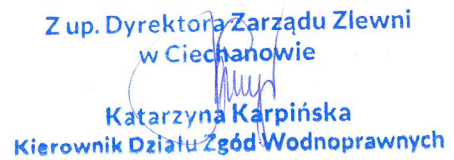 Z up. Dyrektora Zarządu Zlewni
w Ciechanowie
Katarzyna Karpińska
Kierownik Działu Zgód Wodnoprawnych